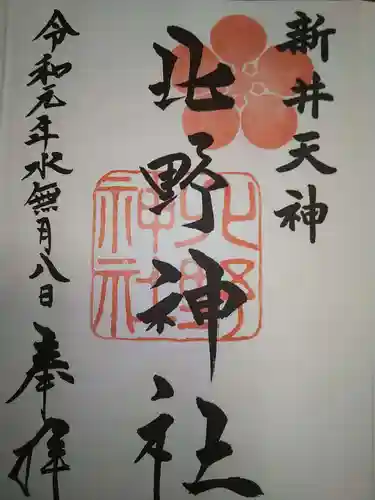 新井天神
北野神社
北野
神社
令和元年水無月八日
奉拝